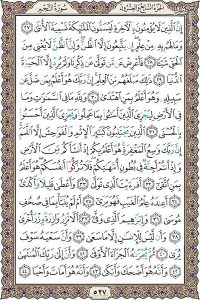 الجزء السابع والعشرون سورة النجم
إِنَّ الَّذِينَ لَا يُؤْمِنُونَ بِالْآخِرَةِ لَيُسَمُّونَ الْمَلَائِكَةَ تَسْمِيَةَ الْأُنثَىٰ ٢٧
وَمَا لَهُم بِهِ مِنْ عِلْمٍ إِن يَتَّبِعُونَ إِلَّا الظَّنَّ وَإِنَّ الظَّنَّ لَا يُغْنِي مِنَ
الْحَقِّ شَيْئًا ٢٨ فَأَعْرِضْ عَن مَّن تَوَلَّىٰ عَن ذِكْرِنَا وَلَمْ يُرِدْ إِلَّا الْحَيَاةَ
الدُّنْيَا ٢٩ ذَٰلِكَ مَبْلَغُهُم مِّنَ الْعِلْمِ إِنَّ رَبَّكَ هُوَ أَعْلَمُ بِمَن ضَلَّ عَن
سَبِيلِهِ وَهُوَ أَعْلَمُ بِمَنِ اهْتَدَىٰ ٣٠ وَلِلَّهِ مَا فِي السَّمَاوَاتِ وَمَا
فِي الْأَرْضِ لِيَجْزِيَ الَّذِينَ أَسَاءُوا بِمَا عَمِلُوا وَيَجْزِيَ الَّذِينَ أَحْسَنُوا
بِالْحُسْنَى ٣١ الَّذِينَ يَجْتَنِبُونَ كَبَائِرَ الْإِثْمِ وَالْفَوَاحِشَ إِلَّا اللَّمَمَ
إِنَّ رَبَّكَ وَاسِعُ الْمَغْفِرَةِ هُوَ أَعْلَمُ بِكُمْ إِذْ أَنشَأَكُم مِّنَ الْأَرْضِ
وَإِذْ أَنتُمْ أَجِنَّةٌ فِي بُطُونِ أُمَّهَاتِكُمْ فَلَا تُزَكُّوا أَنفُسَكُمْ هُوَ أَعْلَمُ
بِمَنِ اتَّقَىٰ ٣٢ أَفَرَأَيْتَ الَّذِي تَوَلَّىٰ ٣٣ وَأَعْطَىٰ قَلِيلًا وَأَكْدَىٰ
٣٤ أَعِندَهُ عِلْمُ الْغَيْبِ فَهُوَ يَرَىٰ ٣٥ أَمْ لَمْ يُنَبَّأْ بِمَا فِي صُحُفِ
مُوسَىٰ ٣٦ وَإِبْرَاهِيمَ الَّذِي وَفَّىٰ ٣٧ أَلَّا تَزِرُ وَازِرَةٌ وِزْرَ أُخْرَىٰ
٣٨ وَأَن لَّيْسَ لِلْإِنسَانِ إِلَّا مَا سَعَىٰ ٣٩ وَأَنَّ سَعْيَهُ سَوْفَ
يُرَىٰ ٤٠ ثُمَّ يُجْزَاهُ الْجَزَاءَ الْأَوْفَىٰ ٤١ وَأَنَّ إِلَىٰ رَبِّكَ الْمُنتَهَىٰ
٤٢ وَأَنَّهُ هُوَ أَضْحَكَ وَأَبْكَىٰ ٤٣ وَأَنَّهُ هُوَ أَمَاتَ وَأَحْيَا ٤٤
٥٢٧